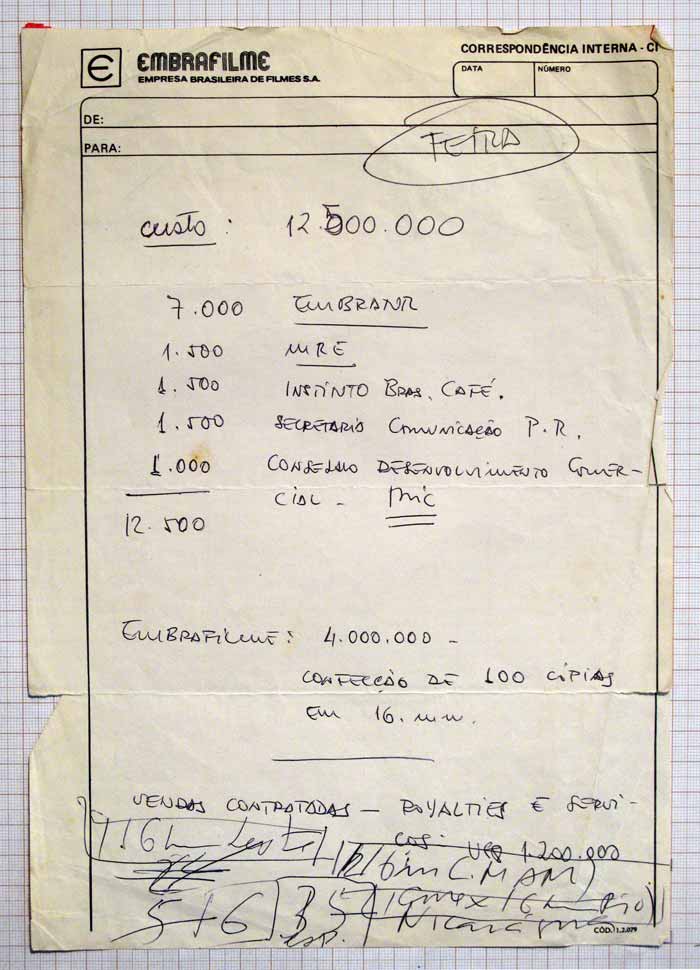 EMBRAFILME
EMPRESA BRASILEIRA DE FILMES S.A.
CORRESPONDÊNCIA INTERNA - CI
DATA NÚMERO
DE:
PARA:
FEIRA
custo: 12.500.000
7.000 EMBRATUR
1.500 MRE
1.500 INSTINTO BRAS. CAFÉ.
1.500 SECRETARIA COMUNICAÇÃO P.R.
1.000 CONSELHO DESENVOLVIMENTO COMER-
CIAL - MIC
12.500
EMBRAFILME: 4.000.000 -
CONFECÇÃO DE 100 CÓPIAS
EM 16. mm.
VENDAS CONTRATADAS - ROYALTIES E SERVI-
ÇOS: US$ 1.200.000
5+6 35
Nicarágua
CÓD. 1.2.079